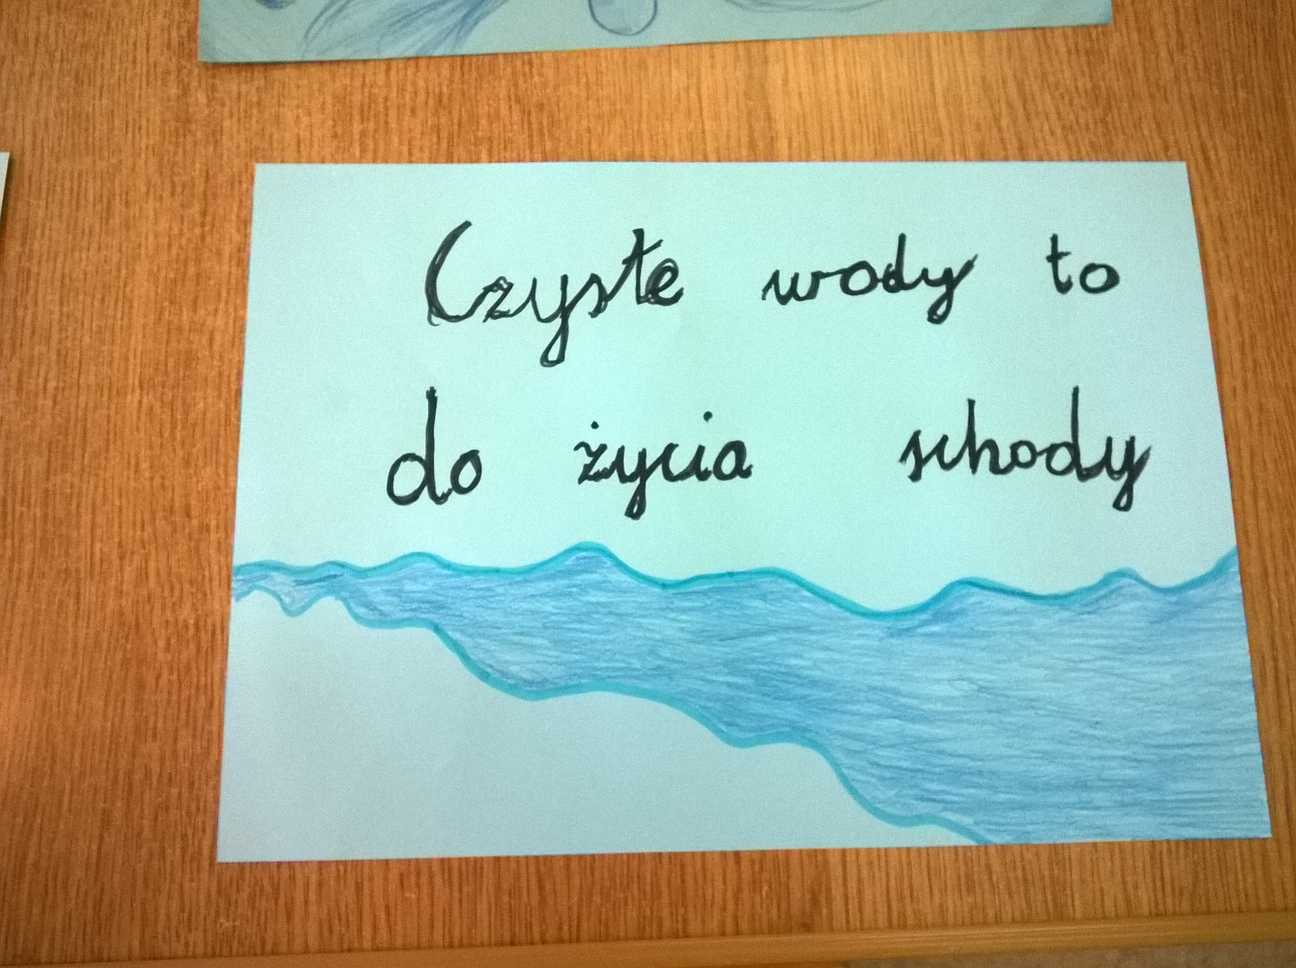 Czyste wody to
do życia schody